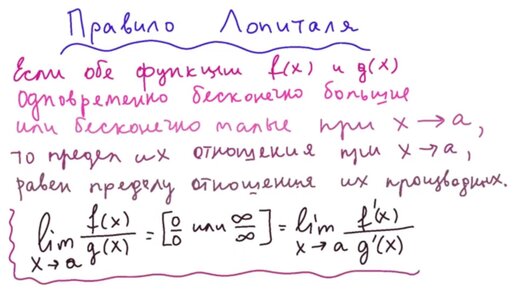 Правило Лопиталя
Если обе функции f(x) и g(x)
одновременно бесконечно большие
или бесконечно малые при x → a,
то предел их отношения при x → a,
равен пределу отношения их производних.
lim x→a f(x)/g(x) = [0/0 или ∞/∞] = lim x→a f'(x)/g'(x)